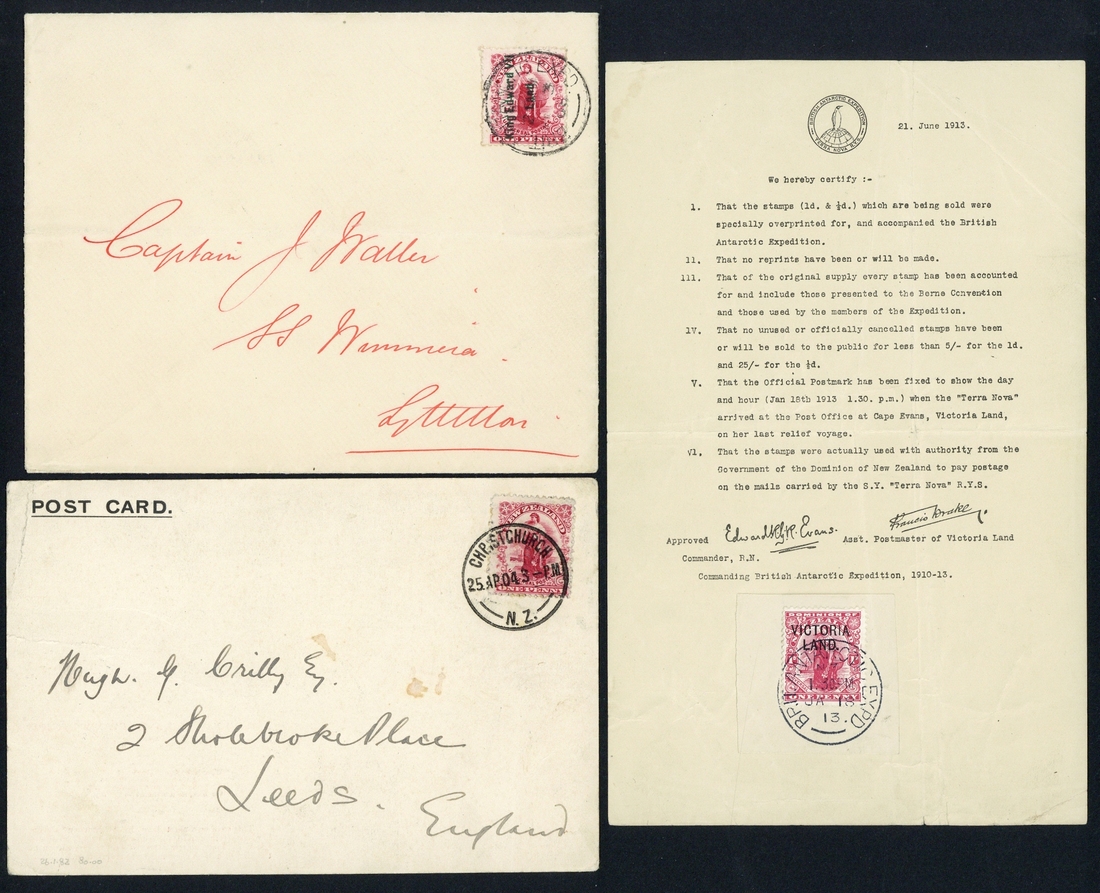 King Edward VII
Land.
NEW ZEALAND
EXPD.
ONE PENNY
Captain J Waller
SS Wimmera.
Lyttelton
POST CARD.
NEW ZEALAND
CHRISTCHURCH
25 AP.04 3 - PM
N.Z.
ONE PENNY
Hugh. G. Crilly Esq.
2 Sholebroke Place
Leeds.
England
26-1-82 80-00
BRITISH ANTARCTIC EXPEDITION
TERRA NOVA R.Y.S.
21. June 1913.
We hereby certify :-
1. That the stamps (1d. & ½d.) which are being sold were
specially overprinted for, and accompanied the British
Antarctic Expedition.
11. That no reprints have been or will be made.
111. That of the original supply every stamp has been accounted
for and include those presented to the Berne Convention
and those used by the members of the Expedition.
1V. That no unused or officially cancelled stamps have been
or will be sold to the public for less than 5/- for the 1d.
and 25/- for the ½d.
V. That the Official Postmark has been fixed to show the day
and hour (Jan 18th 1913 1.30. p.m.) when the "Terra Nova"
arrived at the Post Office at Cape Evans, Victoria Land,
on her last relief voyage.
V1. That the stamps were actually used with authority from the
Government of the Dominion of New Zealand to pay postage
on the mails carried by the S.Y. "Terra Nova" R.Y.S.
Approved Edward R.G.R. Evans. Francis Drake.
Asst. Postmaster of Victoria Land
Commander, R.N.
Commanding British Antarctic Expedition, 1910-13.
DOMINION OF
VICTORIA
LAND.
BRIT. ANTARCTIC EXPD.
1.30PM
JA 18
13.
ONE PENNY